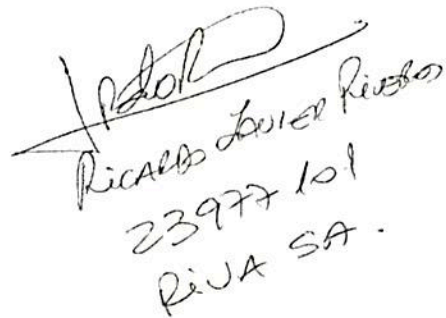 Ricardo Javier Riveros
23977101
RiVA SA.